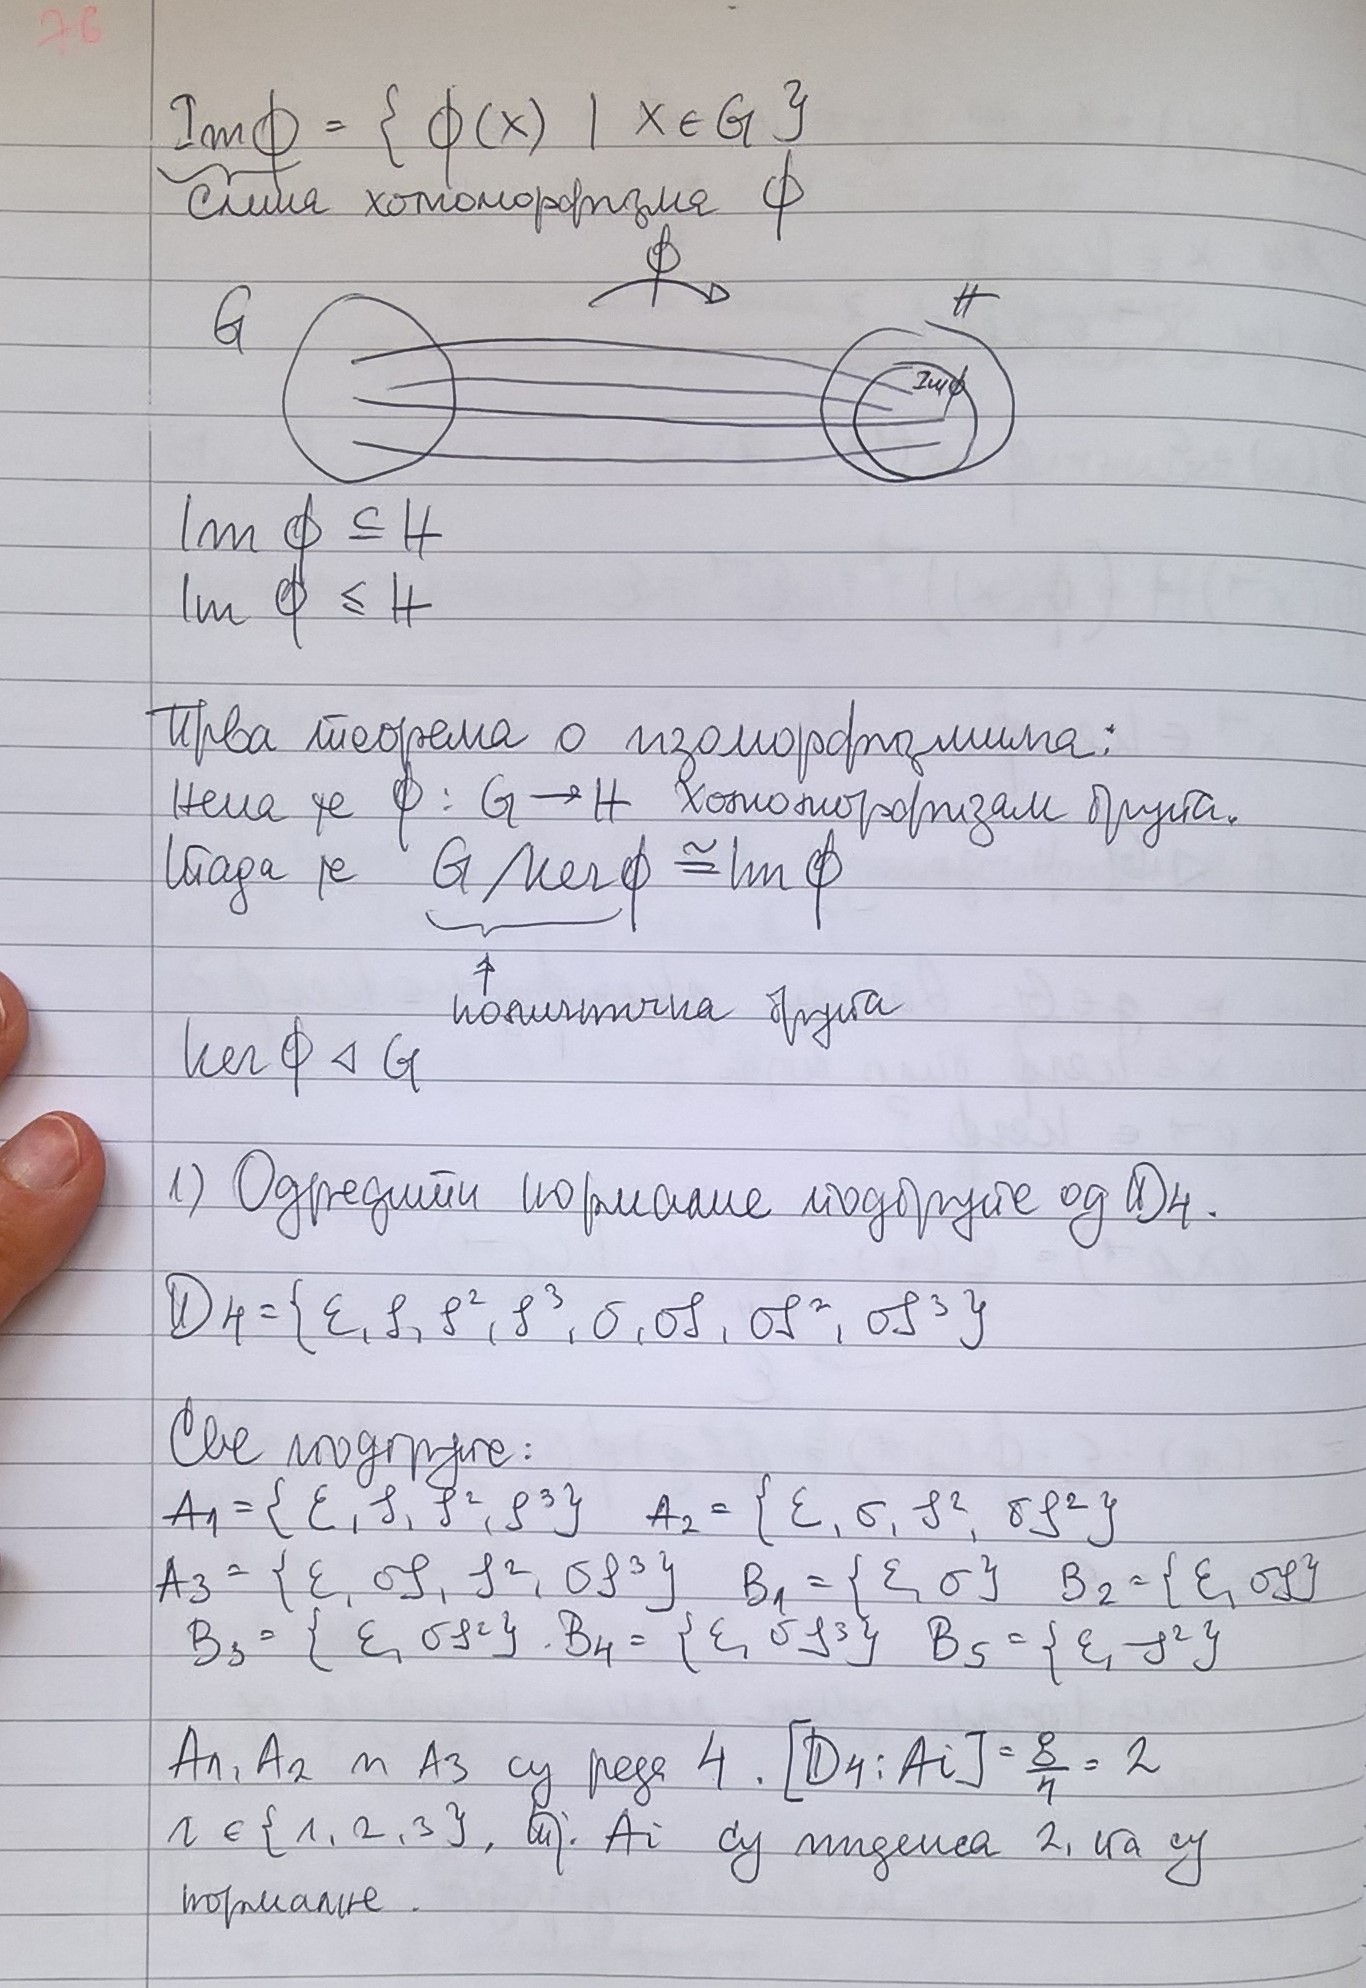 76
Im φ = { φ(x) | x ∈ G }
слика хомоморфизма φ
φ
G H
Im φ
Im φ ⊆ H
Im φ ≤ H
Прва теорема о изоморфизмима:
Нека је φ : G → H хомоморфизам група.
Тада је G / ker φ ≅ Im φ
количничка група
ker φ ◁ G
1) Одредити нормалне подгрупе од D4.
D4 = { ε, ρ, ρ², ρ³, σ, σρ, σρ², σρ³ }
Све подгрупе:
A1 = { ε, ρ, ρ², ρ³ } A2 = { ε, σ, ρ², σρ² }
A3 = { ε, σρ, ρ², σρ³ } B1 = { ε, σ } B2 = { ε, σρ }
B3 = { ε, σρ² } . B4 = { ε, σρ³ } B5 = { ε, ρ² }
A1, A2 и A3 су реда 4 . [D4 : Ai] = 8/4 = 2
i ∈ { 1, 2, 3 }, тј. Ai су индекса 2, па су
нормалне .